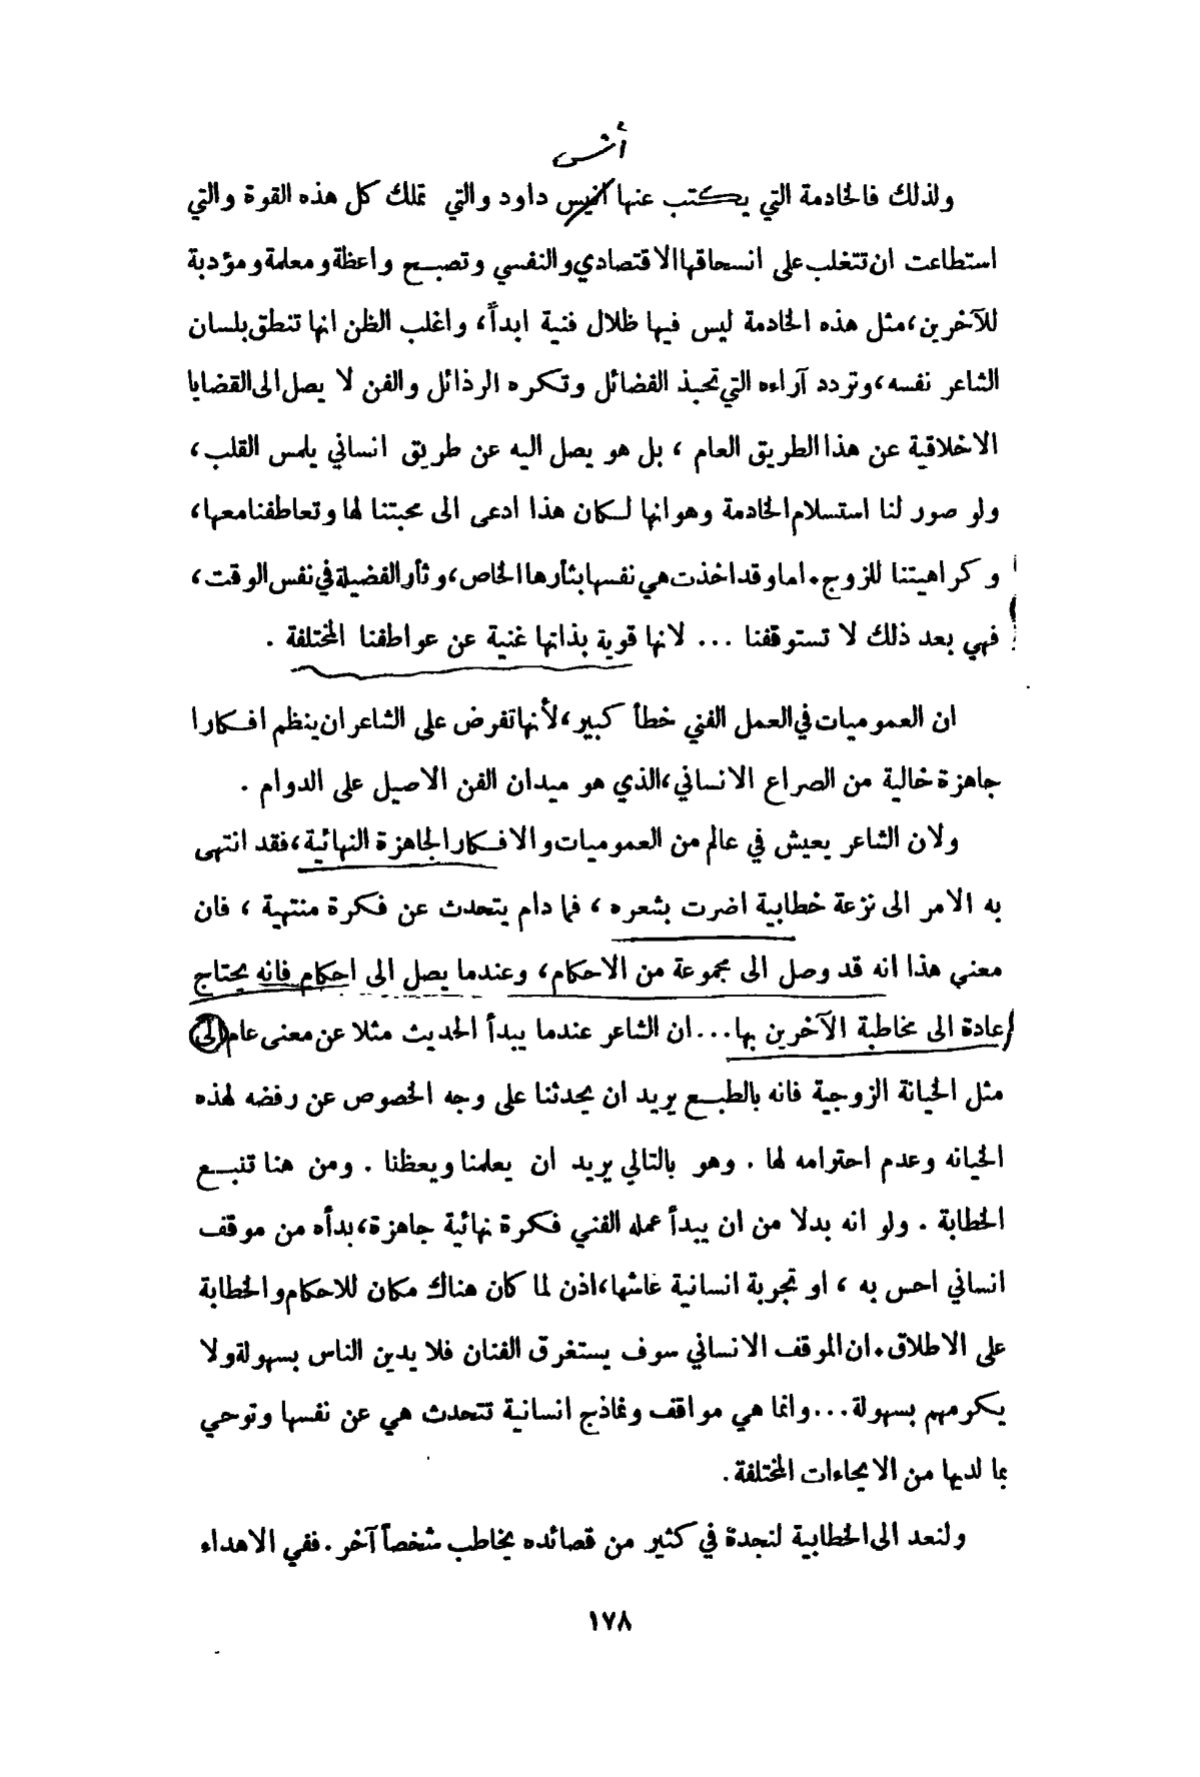 أنس
ولذلك فالخادمة التي يكتب عنها انيس داود والتي تملك كل هذه القوة والتي
استطاعت ان تتغلب على انسحاقها الاقتصادي والنفسي وتصبح واعظة ومعلمة ومؤدبة
للآخرين، مثل هذه الخادمة ليس فيها ظلال فنية ابداً، واغلب الظن انها تنطق بلسان
الشاعر نفسه، وتردد آراءه التي تحبذ الفضائل وتكره الرذائل والفن لا يصل الى القضايا
الاخلاقية عن هذا الطريق العام ، بل هو يصل اليه عن طريق انساني يلمس القلب ،
ولو صور لنا استسلام الخادمة وهوانها لكان هذا ادعى الى محبتنا لها وتعاطفنا معها،
وكراهيتنا للزوج. اما وقد اخذت هي نفسها بثأرها الخاص، وثأر الفضيلة في نفس الوقت ،
فهي بعد ذلك لا تستوقفنا ... لانها قوية بذاتها غنية عن عواطفنا المختلفة .
ان العموميات في العمل الفني خطأ كبير، لأنها تفرض على الشاعر ان ينظم افكارا
جاهزة خالية من الصراع الانساني، الذي هو ميدان الفن الاصيل على الدوام .
ولان الشاعر يعيش في عالم من العموميات والافكار الجاهزة النهائية، فقد انتهى
به الامر الى نزعة خطابية اضرت بشعره ، فما دام يتحدث عن فكرة منتهية ، فان
معنى هذا انه قد وصل الى مجموعة من الاحكام، وعندما يصل الى احكام فانه يحتاج
عادة الى مخاطبة الآخرين بها... ان الشاعر عندما يبدأ الحديث مثلا عن معنى عام (الى
مثل الخيانة الزوجية فانه بالطبع يريد ان يحدثنا على وجه الخصوص عن رفضه لهذه
الخيانه وعدم احترامه لها . وهو بالتالي يريد ان يعلمنا ويعظنا . ومن هنا تنبع
الخطابة . ولو انه بدلا من ان يبدأ عمله الفني فكرة نهائية جاهزة، بدأه من موقف
انساني احس به ، او تجربة انسانية عاشها، اذن لما كان هناك مكان للاحكام والخطابة
على الاطلاق. ان الموقف الانساني سوف يستغرق الفنان فلا يدين الناس بسهولة ولا
يكرمهم بسهولة... وانما هي مواقف ونماذج انسانية تتحدث هي عن نفسها وتوحي
بما لديها من الايحاءات المختلفة .
ولنعد الى الخطابية لنجدة في كثير من قصائده يخاطب شخصاً آخر . ففي الاهداء
١٧٨